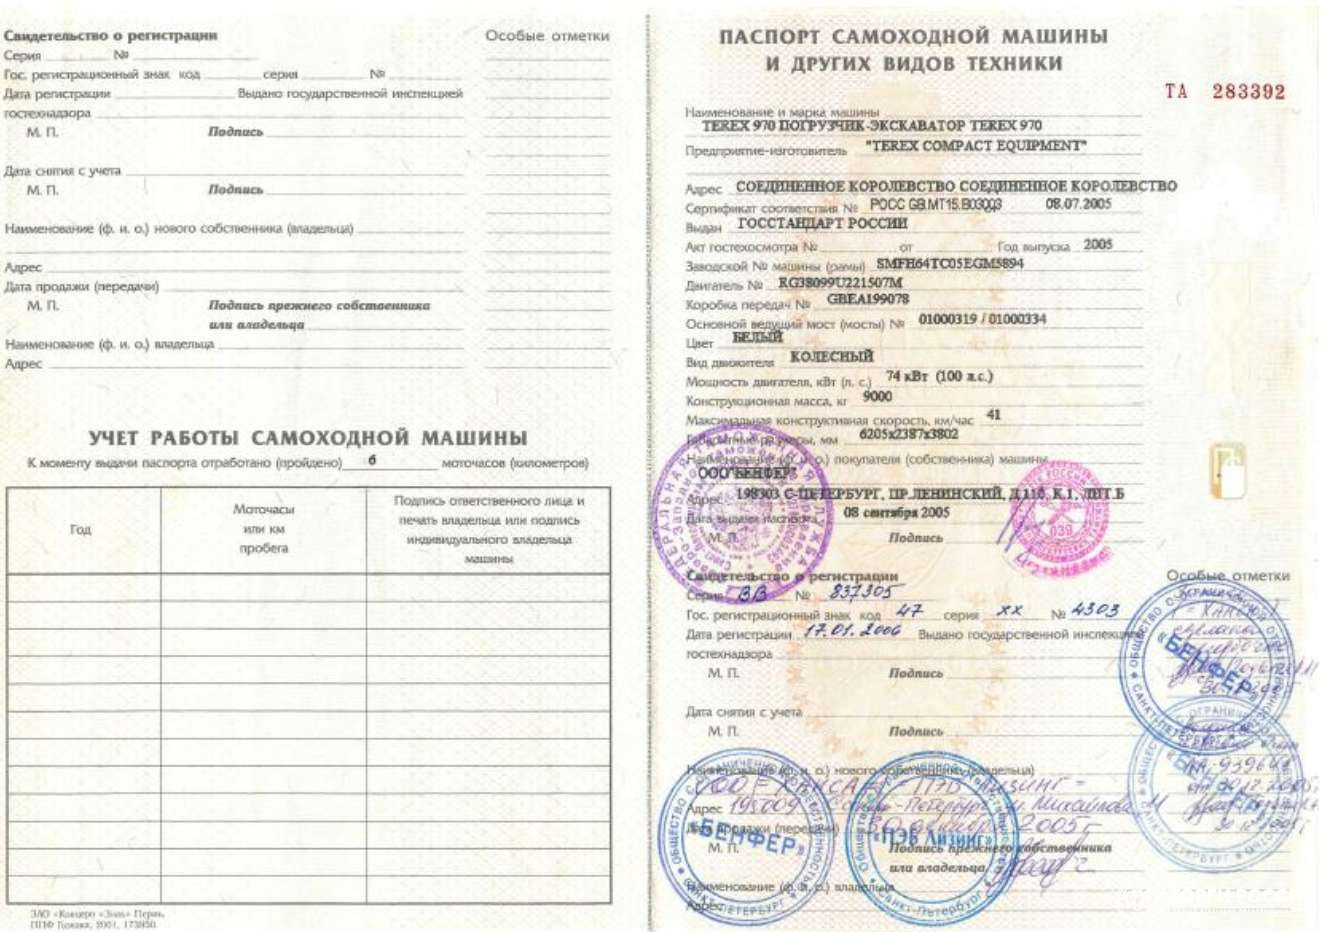 Свидетельство о регистрации
Особые отметки
Серия № 
Гос. регистрационный знак код серия №
Дата регистрации Выдано государственной инспекцией
гостехнадзора
М. П. Подпись
Дата снятия с учета
М. П. Подпись
Наименование (ф. и. о.) нового собственника (владельца)
Адрес
Дата продажи (передачи)
М. П. Подпись прежнего собственника
или владельца
Наименование (ф. и. о.) владельца
Адрес
УЧЕТ РАБОТЫ САМОХОДНОЙ МАШИНЫ
К моменту выдачи паспорта отработано (пройдено) 6 моточасов (километров)
Год
Моточасы
или км
пробега
Подпись ответственного лица и
печать владельца или подпись
индивидуального владельца
машины
ЗАО «Концерн «Знак» Пермь,
2001, 173850.
ПАСПОРТ САМОХОДНОЙ МАШИНЫ
И ДРУГИХ ВИДОВ ТЕХНИКИ
ТА 283392
Наименование и марка машины
TEREX 970 ПОГРУЗЧИК-ЭКСКАВАТОР TEREX 970
Предприятие-изготовитель "TEREX COMPACT EQUIPMENT"
Адрес СОЕДИНЕННОЕ КОРОЛЕВСТВО СОЕДИНЕННОЕ КОРОЛЕВСТВО
Сертификат соответствия № РОСС GB.МТ15.В03003 от 08.07.2005
Выдан ГОССТАНДАРТ РОССИИ
Акт гостехосмотра № от Год выпуска 2005
Заводской № машины (рамы) SMFH64TC05EGM5894
Двигатель № RG38099U221507M
Коробка передач № GBEA199078
Основной ведущий мост (мосты) № 01000319 / 01000334
Цвет БЕЛЫЙ
Вид движителя КОЛЕСНЫЙ
Мощность двигателя, кВт (л. с.) 74 кВт (100 л.с.)
Конструкционная масса, кг 9000
Максимальная конструктивная скорость, км/час 41
Габаритные размеры, мм 6205x2387x3802
Наименование (ф. и. о.) покупателя (собственника) машины
ООО"БЕНФЕР"
Адрес 198303 С-ПЕТЕРБУРГ, ПР.ЛЕНИНСКИЙ, Д.116, К.1, ЛИТ.Б
Дата выдачи паспорта 08 сентября 2005
М. П. Подпись
Свидетельство о регистрации
Особые отметки
Серия ВВ № 837305
Гос. регистрационный знак код 47 серия хх № 4303
Дата регистрации 17.01.2006 Выдано государственной инспекцией
гостехнадзора
М. П. Подпись
Дата снятия с учета
М. П. Подпись
Наименование (ф. и. о.) нового собственника (владельца)
Адрес 195009 Санкт-Петербург ул. Михайлова 11
Дата продажи (передачи) 30 декабря 2005 г.
М. П. Подпись прежнего собственника
или владельца
Наименование (ф. и. о.) владельца
Адрес
«БЕНФЕР»
«ПЭБ Лизинг»
«БЕНФЕР»